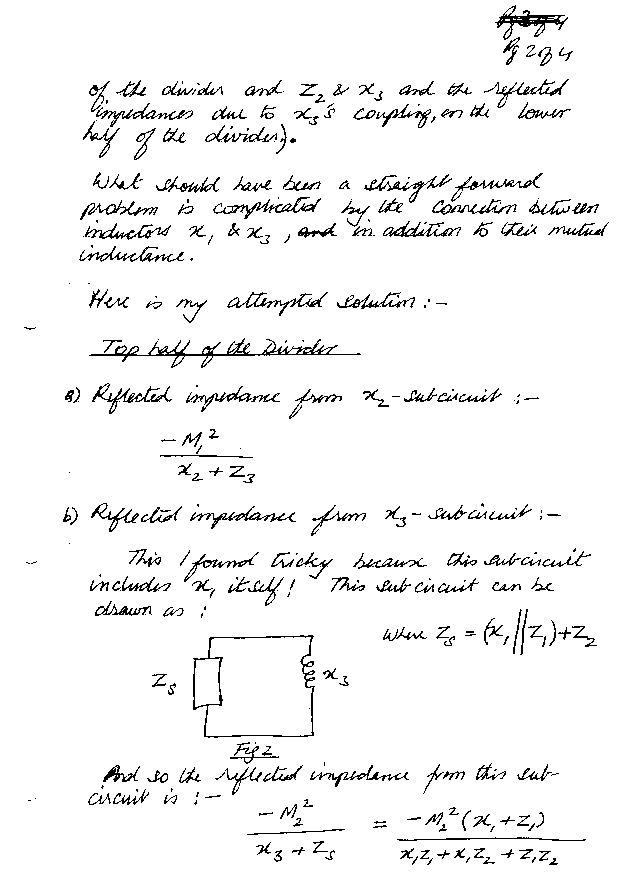 Pg 2 of 4
Pg 2 of 4
of the divider and Z₂ & x₃ and the reflected
impedances due to x₃'s coupling, on the lower
half of the divider).
What should have been a straight forward
problem is complicated by the connection between
inductors x₁ & x₃, and in addition to their mutual
inductance.
Here is my attempted solution :-
Top half of the Divider
a) Reflected impedance from x₂-subcircuit :-
-M₁²
x₂ + Z₃
b) Reflected impedance from x₃-subcircuit :-
This I found tricky because this subcircuit
includes x₁ itself! This subcircuit can be
drawn as :
where Zₛ = (x₁ || Z₁) + Z₂
Zₛ
x₃
Fig 2
And so the reflected impedance from this sub-
circuit is :-
-M₂² = -M₂² (x₁ + Z₁)
x₃ + Zₛ   x₁Z₁ + x₁Z₂ + Z₁Z₂